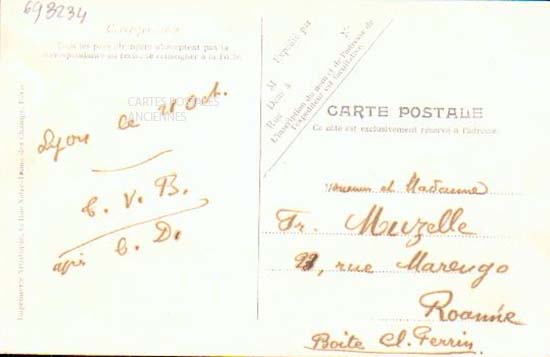 693234
Correspondance
Tous les pays étrangers n'acceptent pas la
correspondance au recto, se renseigner à la Poste.
CARTES POSTALES
ANCIENNES
Lyon ce 21 Oct.
C. V. B.
C. D.
Nº
Expédié par
M
Dem à
Rue
L'inscription du nom et de l'adresse de
l'expéditeur est facultative.
CARTE POSTALE
Ce côté est exclusivement réservé à l'adresse.
Monsieur et Madame
Fr. Muzelle
23, rue Marengo
Roanne
Boite Cl. Perrin
Rue Notre-Dame des Champs, Paris